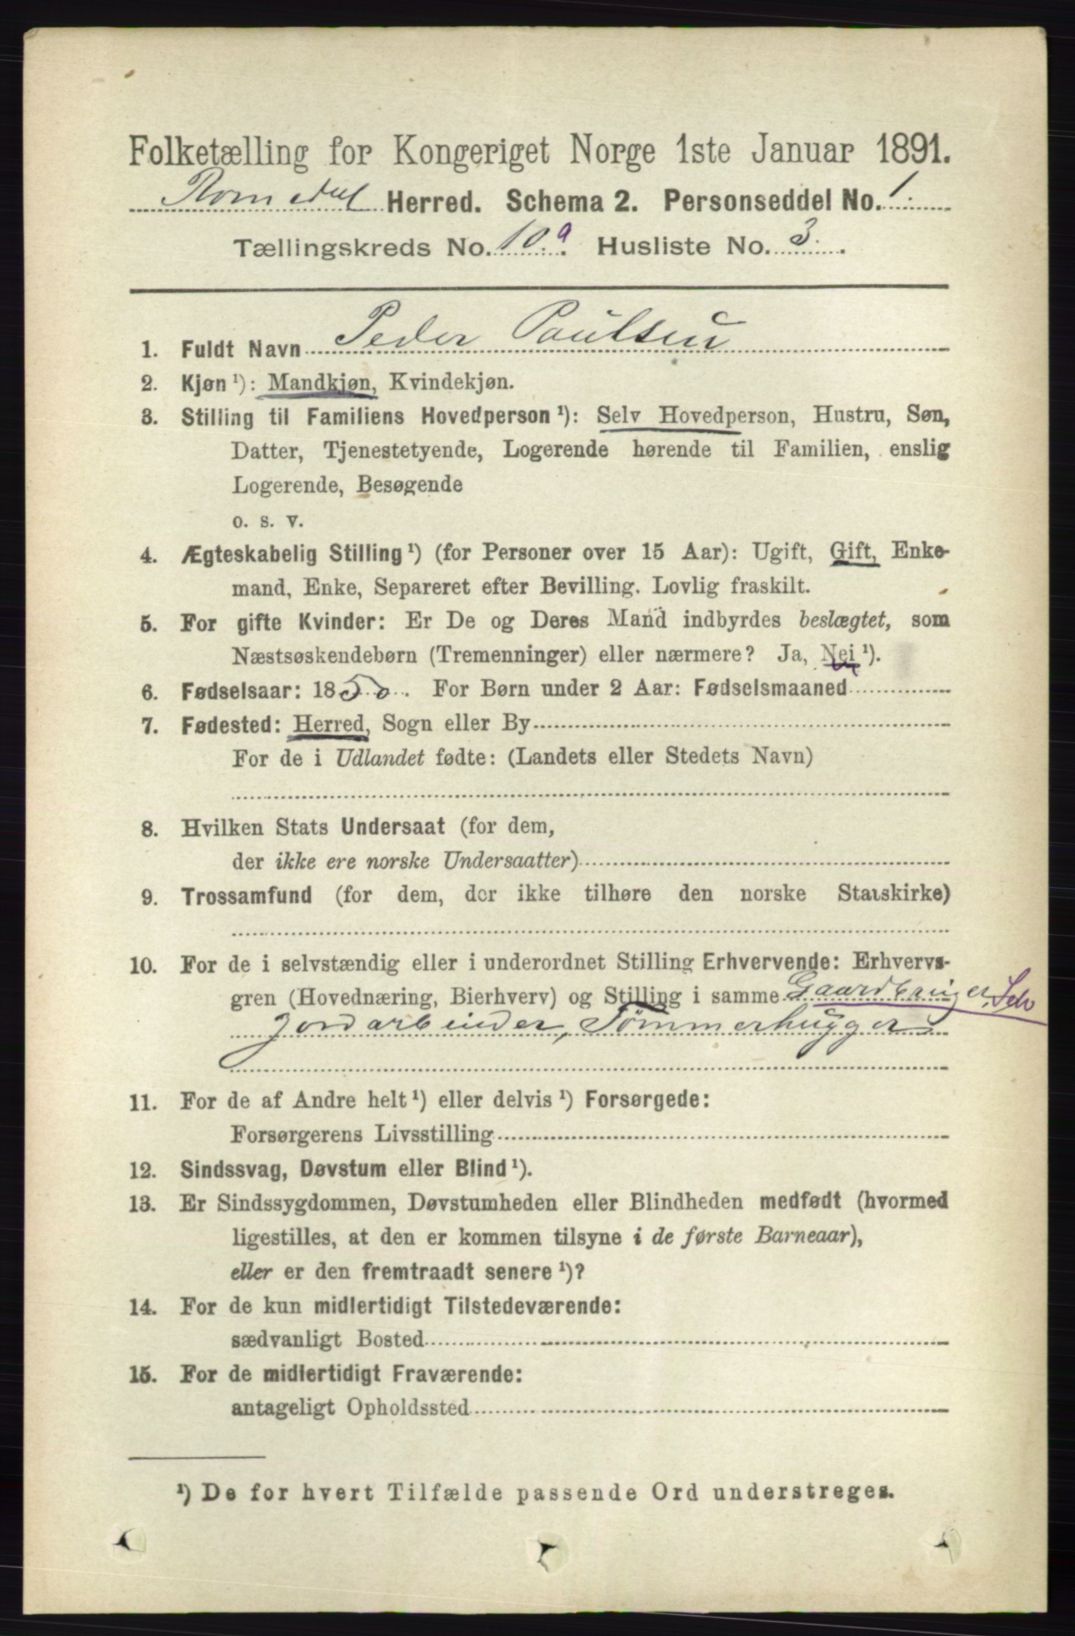 Folketælling for Kongeriget Norge 1ste Januar 1891.
Romedal Herred. Schema 2. Personseddel No. 1.
Tællingskreds No. 10.a Husliste No. 3.
1. Fuldt Navn Peder Poulsen
2. Kjøn ¹): Mandkjøn, Kvindekjøn.
3. Stilling til Familiens Hovedperson ¹): Selv Hovedperson, Hustru, Søn,
Datter, Tjenestetyende, Logerende hørende til Familien, enslig
Logerende, Besøgende
o. s. v.
4. Ægteskabelig Stilling ¹) (for Personer over 15 Aar): Ugift, Gift, Enke-
mand, Enke, Separeret efter Bevilling. Lovlig fraskilt.
5. For gifte Kvinder: Er De og Deres Mand indbyrdes beslægtet, som
Næstsøskendebørn (Tremenninger) eller nærmere? Ja, Nei ¹).
6. Fødselsaar: 1850. For Børn under 2 Aar: Fødselsmaaned
7. Fødested: Herred, Sogn eller By
For de i Udlandet fødte: (Landets eller Stedets Navn)
8. Hvilken Stats Undersaat (for dem,
der ikke ere norske Undersaatter)
9. Trossamfund (for dem, der ikke tilhøre den norske Statskirke)
10. For de i selvstændig eller i underordnet Stilling Erhvervende: Erhvervs-
gren (Hovednæring, Bierhverv) og Stilling i samme Gaardbruger, Selv
Jordarbeider, Tømmerhugger
11. For de af Andre helt ¹) eller delvis ¹) Forsørgede:
Forsørgerens Livsstilling
12. Sindssvag, Døvstum eller Blind ¹).
13. Er Sindssygdommen, Døvstumheden eller Blindheden medfødt (hvormed
ligestilles, at den er kommen tilsyne i de første Barneaar),
eller er den fremtraadt senere ¹)?
14. For de kun midlertidigt Tilstedeværende:
sædvanligt Bosted
15. For de midlertidigt Fraværende:
antageligt Opholdssted
¹) De for hvert Tilfælde passende Ord understreges.